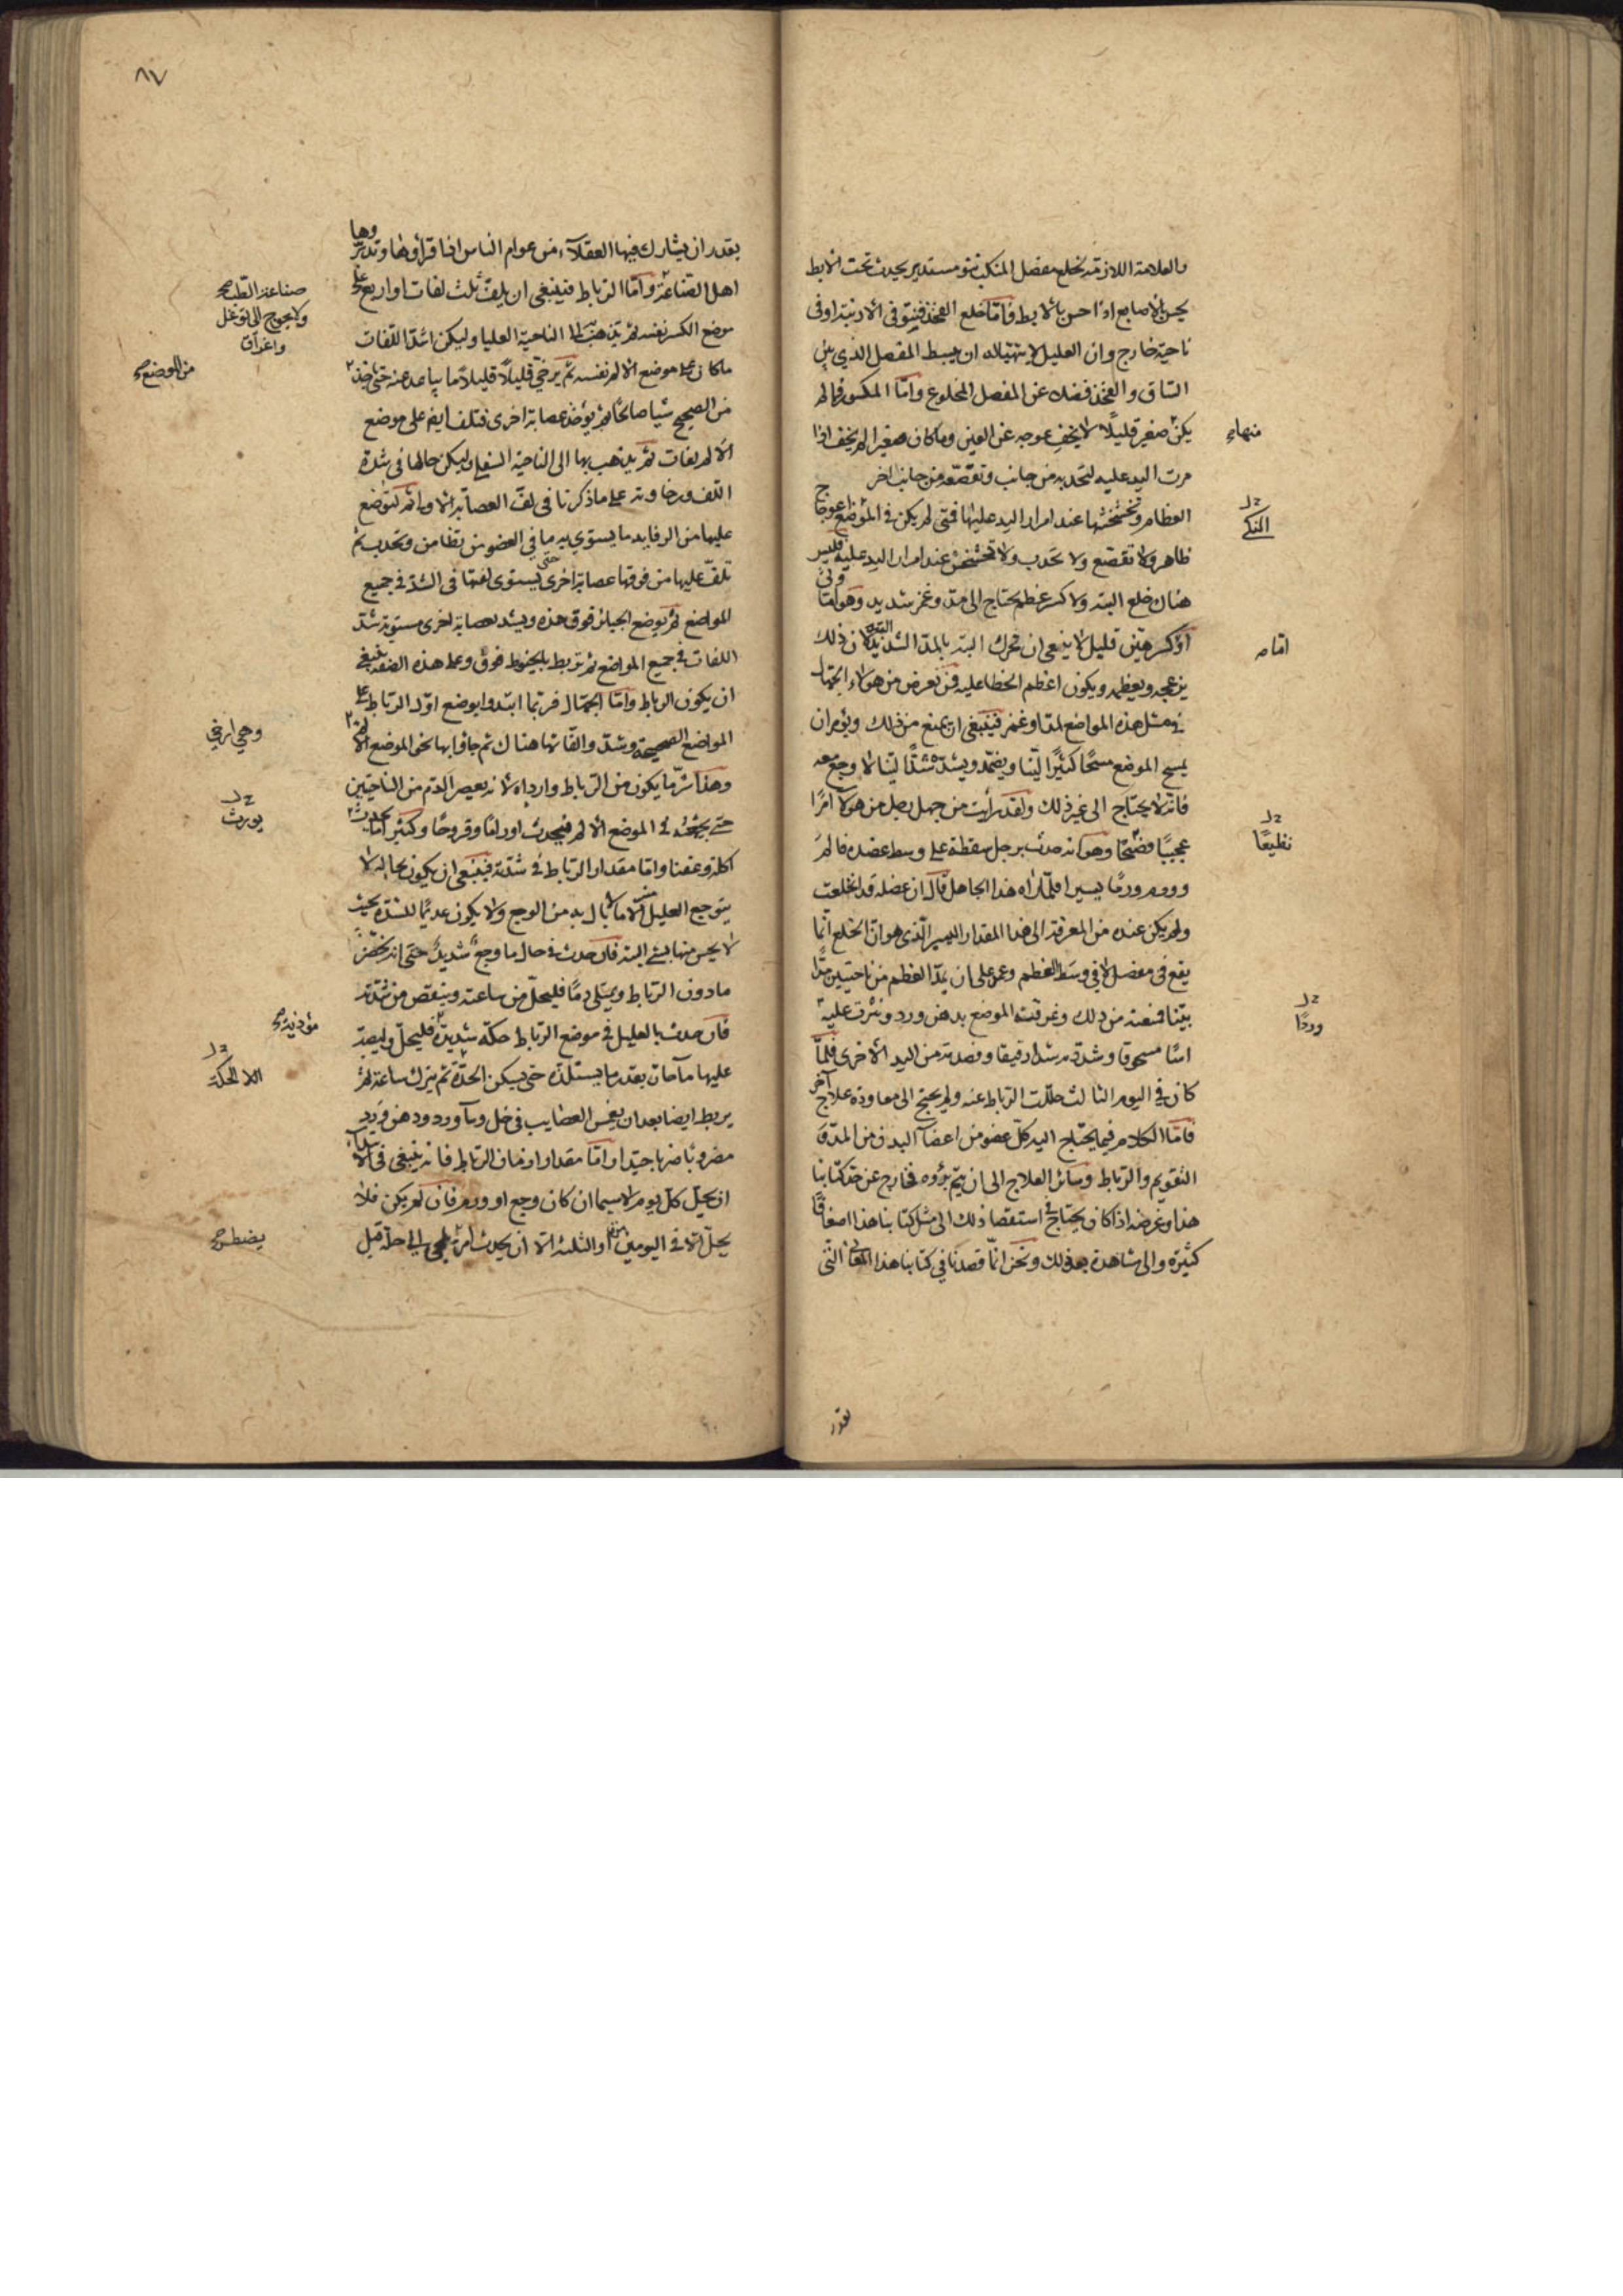 والعلامة اللازمة لخلع مفصل المنكب نتو مستدير يحدث تحت الابط
يحس الاصابع اذا حس بالابط فاما خلع الفخذ فنتو في الاربية او في
ناحية خارج وان العليل لا يتهيا له ان يبسط المفصل الذي بين
الساق والفخذ فضلا عن المفصل المخلوع واما المكسور فما لم
يكن صغير قليلا لا يخف عوجه عن العين وما كان صغيرا لم يخف اذا
مرت اليد عليه لتحدبه من جانب وتقصعه من جانب اخر
العظام وتخشخشها عند امرار اليد عليها فمتى لم يكن في الموضع اعوجاج
ظاهر ولا تقصع ولا تحدب ولا تخشخش عند امرار اليد عليه فليس
هناك خلع البتة ولا كسر عظم يحتاج الى مد وغمز شديد وهو اما وثي
او كسر هين قليل لا ينبغي ان يحرك البتة بالمد الشديد البتة لان ذلك
يزعجه ويعظمه ويكون اعظم الخطا عليه فمن تعرض من هولاء الجهال
في مثل هذه المواضع لمد او غمز فينبغي ان يمنع من ذلك ويؤمر ان
يمسح الموضع مسحا كثيرا لينا ويضمد ويشد شدا لينا لا وجع معه
فانه لا يحتاج الى غير ذلك ولقد رايت من جهل رجل من هولا امرا
عجيبا فضحا وهو انه حدث برجل سقطة على وسط عضده فالم
وورم ورما يسيرا فلما راه هذا الجاهل قال ان عضله قد انخلعت
ولم يكن عنده من المعرفة الى هذا المقدار اليسير الذي هو ان الخلع انما
يقع في مفصل لا في وسط العظم وعزم على ان يمد العظم من ناحيتين مدا
بيننا فمنعته من ذلك وغرقت الموضع بدهن ورد ونثرت عليه
اسا مسحوقا وشددته شدا رفيقا وفصدته من اليد الاخرى فلما
كان في اليوم الثالث حللت الرباط عنه ولم يحتج الى معاودة علاج اخر
فاما الكلام فيما يحتاج اليه كل عضو من اعضا البدن من المد و
التقويم والرباط وسائر العلاج الى ان يتم برؤه فخارج عن حد كتابنا
هذا وغرضه اذا كان يحتاج في استقصا ذلك الى مثل كتابنا هذا اضعافا
كثيرة والى مشاهدة بعد ذلك ونحن انما قصدنا في كتابنا هذا المعاني التي
بقدر
منهاء
امامه
وردا
٨٧
بقدر ان يشارك فيها العقلاء من عوام الناس اذا قراوها وتدبروها
اهل الصناعة واما الرباط فينبغي ان يلف ثلث لفات او اربع على
موضع الكسر نفسه ثم يذهب بها الى الناحية العليا وليكن اشد اللفات
ما كان على موضع الالم نفسه ثم يرخي قليلا قليلا ما يباعد عنه حتى ياخذ
من الصحيح شيا صالحا ثم يؤخذ عصابة اخرى فتلف ايضا على موضع
الالم لفات ثم يذهب بها الى الناحية السفلى وليكن حالها في شدة
اللف ورخاوته على ما ذكرنا في لف العصابة الاولى ثم توضع
عليها من الرفايد ما يستوي به ما في العضو من تطامن وتحدب ثم
تلف عليها من فوقها عصابة اخرى حتى يستوي لفتها في الشد في جميع
المواضع ثم يوضع الجبائر فوق هذه ويشد بعصابة اخرى مستوية شد
اللفات في جميع المواضع ثم تربط بالخيوط فوق وعلى هذه الصفة ينبغي
ان يكون الرباط واما الجهال فربما ابتدوا بوضع اول الرباط على
المواضع الصحيحة وشد والقاتها هناك ثم جاؤا بها نحو الموضع الالم
وهذا شر ما يكون من الرباط وارداه لانه يعصر الدم من الناحيتين
حتى يحتقن في الموضع الالم فيحدث اوراما وقروحا وكثيرا ما يحدث
اكلة وعفنا واما مقدار الرباط في شدته فينبغي ان يكون بحاله لا
يتوجع العليل منه الا ما لا بال به من الوجع ولا يكون عديما للشدة بحيث
لا يحس منها بشي البتة فان حدث في حال ما وجع شديد حتى انه يخضر
ما دون الرباط ويمتلي دما فليحل من ساعته وينقص من شدته
فان حدث بالعليل في موضع الرباط حكة شديدة فليحل وليصب
عليها ماء حار بقدر ما يستلذه حتى يسكن الحدة ثم يترك ساعة ثم
يربط ايضا بعد ان يغمس العصايب في خل وماء ورد ودهن ورد
مضروبا ضربا جيدا واما مقدار ازمان الرباط فانه ينبغي في الابتداء
ان يحل كل يوم لا سيما ان كان وجع او ورم فان لم يكن فلا
يحل الا في اليومين مرة او الثلثة الا ان يحدث امر يلجي الى حله قبل
صناعة الطب صح
ولا يحوج الى توغل
واغراق
من الموضع صح
وهي ارخي
يورث
مؤذية صح
يضطر صح